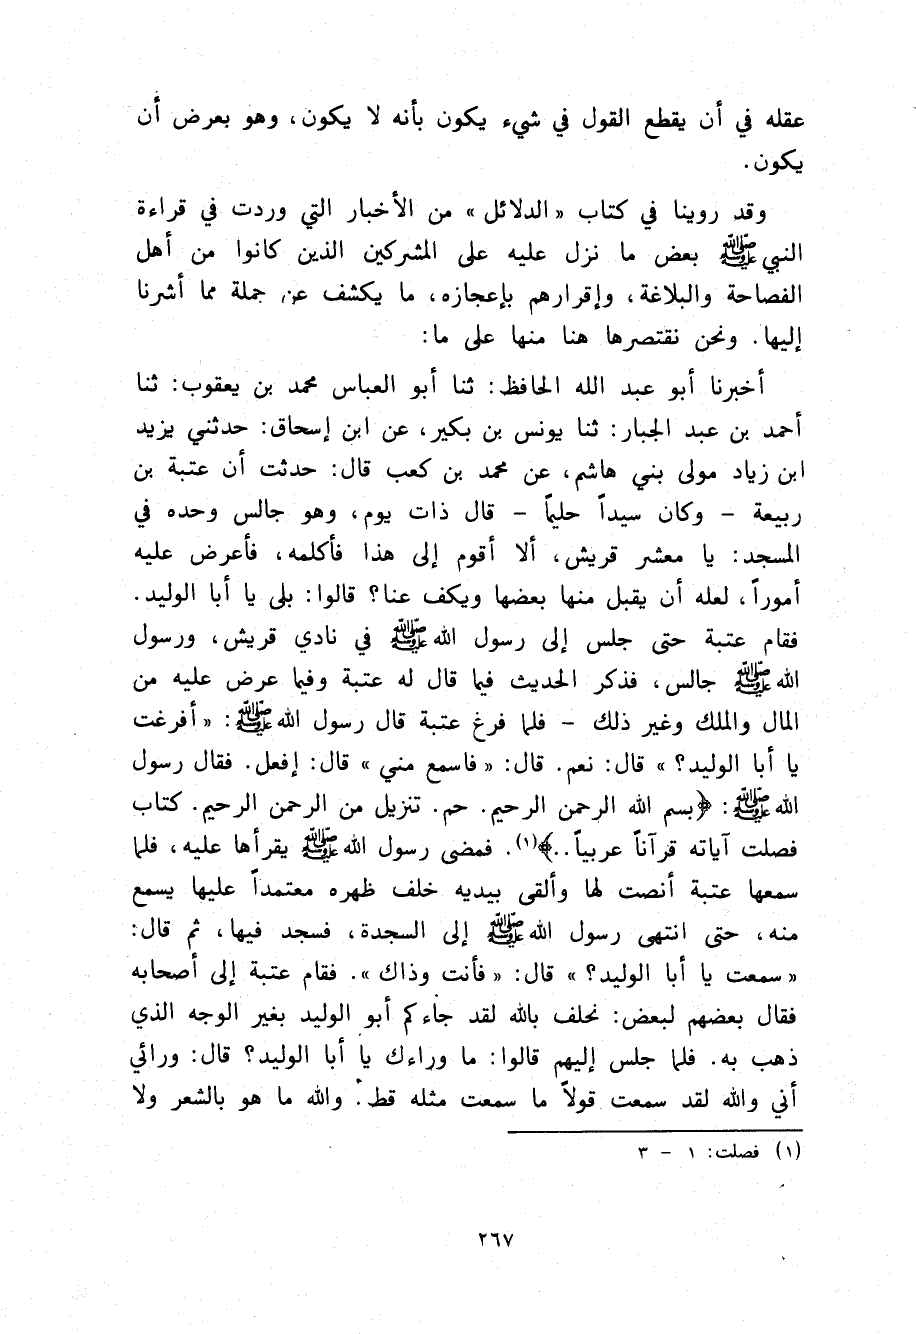 عقله في أن يقطع القول في شيء يكون بأنه لا يكون، وهو بعرض أن
يكون.
وقد روينا في كتاب «الدلائل» من الأخبار التي وردت في قراءة
النبي ﷺ بعض ما نزل عليه على المشركين الذين كانوا من أهل
الفصاحة والبلاغة، وإقرارهم بإعجازه، ما يكشف عن جملة مما أشرنا
إليها. ونحن نقتصرها هنا منها على ما:
أخبرنا أبو عبد الله الحافظ: ثنا أبو العباس محمد بن يعقوب: ثنا
أحمد بن عبد الجبار: ثنا يونس بن بكير، عن ابن إسحاق: حدثني يزيد
ابن زياد مولى بني هاشم، عن محمد بن كعب قال: حدثت أن عتبة بن
ربيعة - وكان سيداً حليماً - قال ذات يوم، وهو جالس وحده في
المسجد: يا معشر قريش، ألا أقوم إلى هذا فأكلمه، فأعرض عليه
أموراً، لعله أن يقبل منها بعضها ويكف عنا؟ قالوا: بلى يا أبا الوليد.
فقام عتبة حتى جلس إلى رسول الله ﷺ في نادي قريش، ورسول
الله ﷺ جالس، فذكر الحديث فيما قال له عتبة وفيما عرض عليه من
المال والملك وغير ذلك - فلما فرغ عتبة قال رسول الله ﷺ: «أفرغت
يا أبا الوليد؟» قال: نعم. قال: «فاسمع مني» قال: إفعل. فقال رسول
الله ﷺ: ﴿بسم الله الرحمن الرحيم. حم. تنزيل من الرحمن الرحيم. كتاب
فصلت آياته قرآناً عربياً..﴾(١). فمضى رسول الله ﷺ يقرأها عليه، فلما
سمعها عتبة أنصت لها وألقى بيديه خلف ظهره معتمداً عليها يسمع
منه، حتى انتهى رسول الله ﷺ إلى السجدة، فسجد فيها، ثم قال:
«سمعت يا أبا الوليد؟» قال: «فأنت وذاك». فقام عتبة إلى أصحابه
فقال بعضهم لبعض: نحلف بالله لقد جاءكم أبو الوليد بغير الوجه الذي
ذهب به. فلما جلس إليهم قالوا: ما وراءك يا أبا الوليد؟ قال: ورائي
أني والله لقد سمعت قولاً ما سمعت مثله قط. والله ما هو بالشعر ولا
(١) فصلت: ١ - ٣
٢٦٧